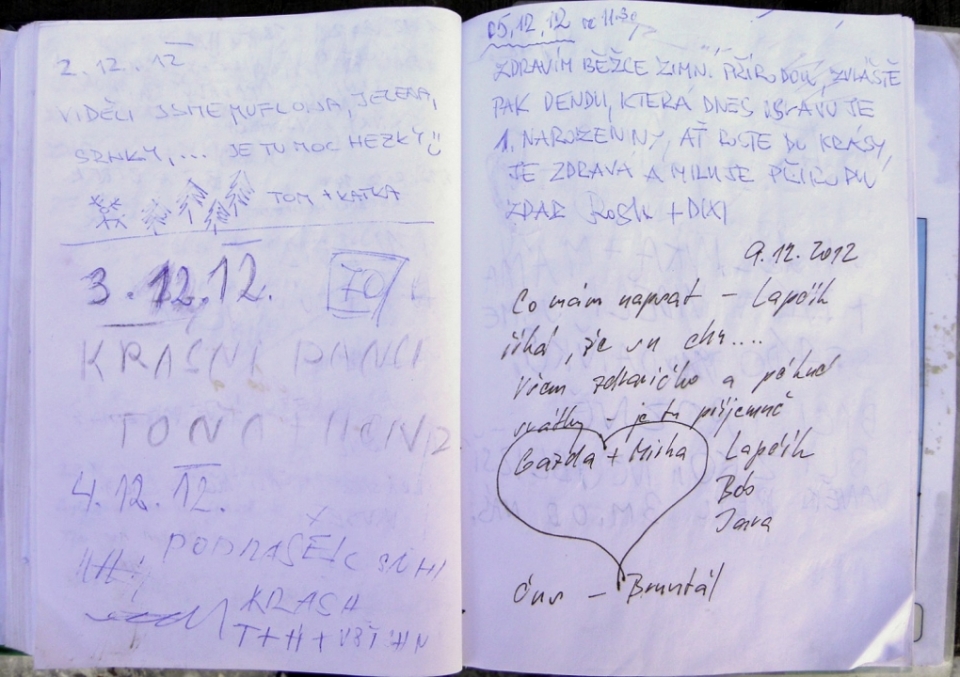 2.12.12
VIDĚLI JSME MUFLONA, JELENA,
SRNKY, ... JE TU MOC HEZKY
TOM + KATKA
3.12.12.
70
KRASNI RANCI
TONA +
4.12.12.
KRASA
05.12.12
ZDRAVÍM BĚŽCE ZIMNÍ PŘÍRODOU, ZVLÁŠTĚ
PAK DENDU, KTERÁ DNES OSLAVUJE
1. NAROZENINY, AŤ ROSTE DO KRÁSY,
JE ZDRAVÁ A MILUJE PŘÍRODU
ZDAR + DIXI
9.12.2012
Co mám napsat – Lapčík
říká, že su chr....
Všem zdravíčko a pěkné
svátky je tu příjemně
Gazda + Misha
Lapčík
Bob
Jana
– Bruntál